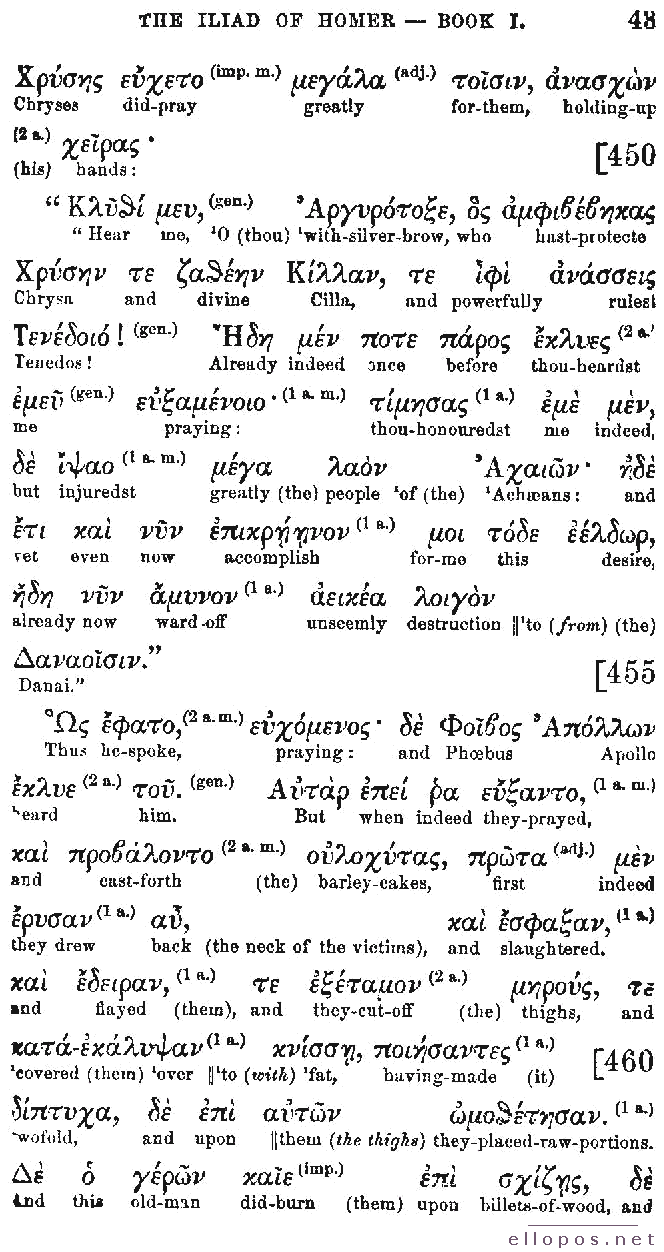 THE ILIAD OF HOMER — BOOK I. 43
Χρύσης εὔχετο (imp. m.) μεγάλα (adj.) τοῖσιν, ἀνασχὼν
Chryses did-pray greatly for-them, holding-up
(2 a.) χεῖρας· [450
(his) hands:
“ Κλῦϑί μευ, (gen.) Ἀργυρότοξε, ὃς ἀμφιϐέϐηκας
“ Hear me, ‘O (thou) ‘with-silver-brow, who hast-protecte
Χρύσην τε ζαϑέην Κίλλαν, τε ἶφὶ ἀνάσσεις
Chrysa and divine Cilla, and powerfully rulest
Τενέδοιό! (gen.) Ἤδη μέν ποτε πάρος ἔκλυες (2 a.
Tenedos! Already indeed once before thou-heardst
ἐμεῦ (gen.) εὐξαμένοιο· (1 a. m.) τίμησας (1 a.) ἐμὲ μὲν,
me praying: thou-honouredst me indeed,
δὲ ἴψαο (1 a. m.) μέγα λαὸν Ἀχαιῶν· ἠδὲ
but injuredst greatly (the) people ‘of (the) ‘Achæans: and
ἔτι καὶ νῦν ἐπικρήηνον (1 a.) μοι τόδε ἐέλδωρ,
yet even now accomplish for-me this desire,
ἤδη νῦν ἄμυνον (1 a.) ἀεικέα λοιγὸν
already now ward-off unseemly destruction ‖‘to (from) (the)
Δαναοῖσιν.” [455
Danai.”
Ὣς ἔφατο, (2 a. m.) εὐχόμενος· δὲ Φοῖϐος Ἀπόλλων
Thus he-spoke, praying: and Phœbus Apollo
ἔκλυε (2 a.) τοῦ. (gen.) Αὐτὰρ ἐπεί ῥα εὔξαντο, (1 a. m.)
heard him. But when indeed they-prayed,
καὶ προϐάλοντο (2 a. m.) οὐλοχύτας, πρῶτα (adj.) μὲν
and cast-forth (the) barley-cakes, first indeed
ἔρυσαν (1 a.) αὖ, καὶ ἔσφαξαν, (1 a.)
they drew back (the neck of the victims), and slaughtered.
καὶ ἔδειραν, (1 a.) τε ἐξέταμον (2 a.) μηρούς, τε
and flayed (them), and they-cut-off (the) thighs, and
κατά-ἐκάλυψαν (1 a.) κνίσσῃ, ποιήσαντες (1 a.) [460
‘covered (them) ‘over ‖‘to (with) ’fat, having-made (it)
δίπτυχα, δὲ ἐπὶ αὐτῶν ὠμοϑέτησαν. (1 a.)
wofold, and upon ‖them (the thighs) they-placed-raw-portions.
Δὲ ὁ γέρῶν καῖε (imp.) ἐπὶ σχίζῃς, δὲ
And this old-man did-burn (them) upon billets-of-wood, and
ellopos.net